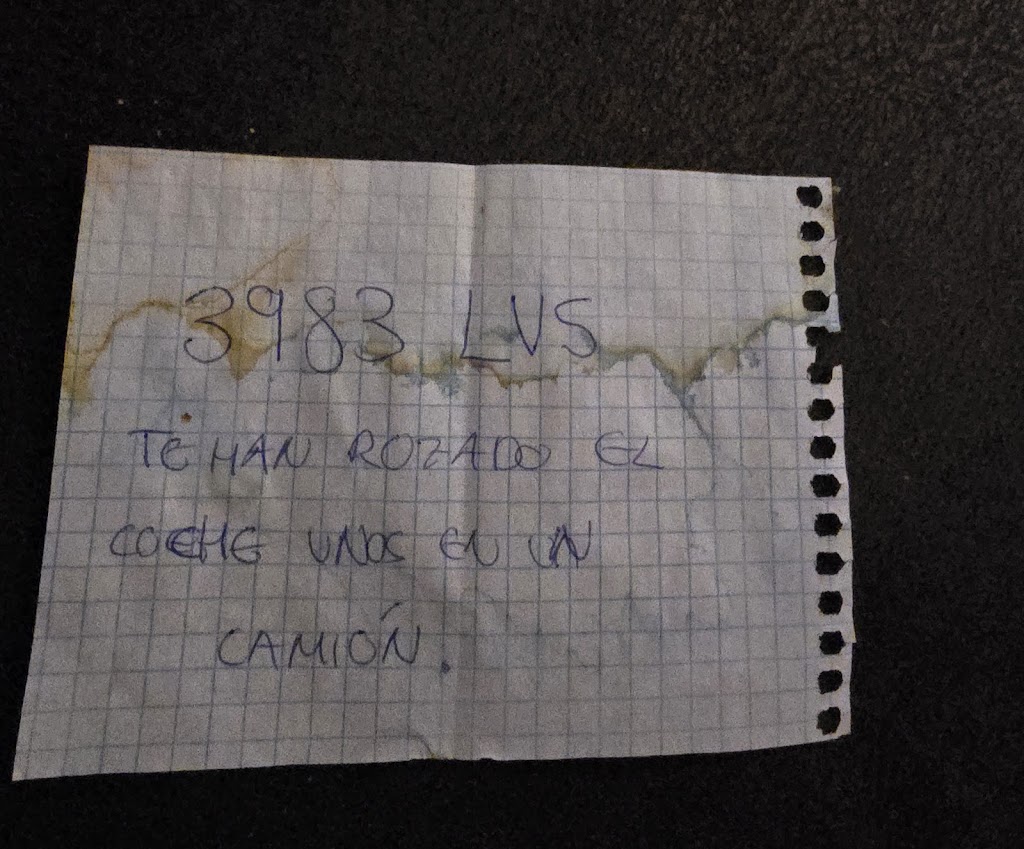 3983 LVS
TE HAN ROZADO EL
COCHE UNOS EN UN
CAMIÓN.